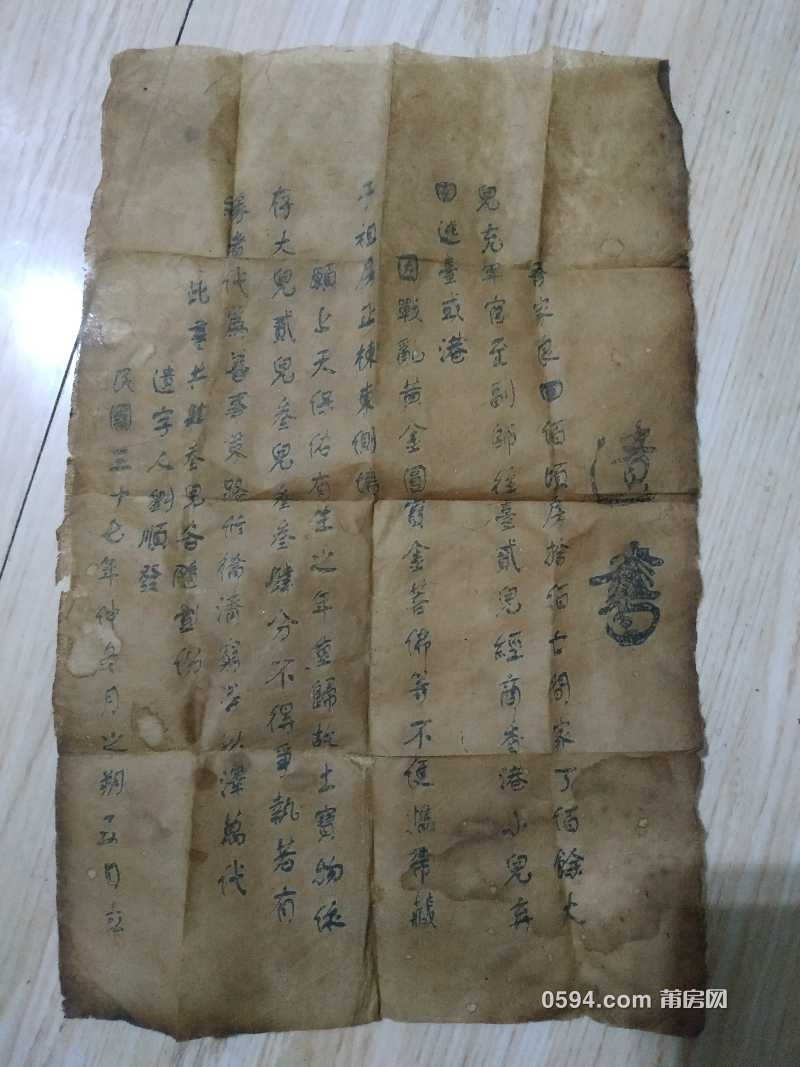 遺書
吾家良田佰頃房拾佰七間家丁佰餘大
兒充軍官至副師往臺貳兒經商香港小兒弃
田逃臺或港
因戰亂黃金圓寶金菩佛等不便攜帶藏
于祖房正棟東側墻
願上天保佑有生之年重歸故土寶物依
存大兒貳兒叁兒叁叁肆分不得爭執若有
緣者代為善事莫路修橋濟窮 以澤萬代
此書共 叁男各隨 份
遺字人劉順發
民國三十七年仲冬月之朔五日立
0594.com 莆房网